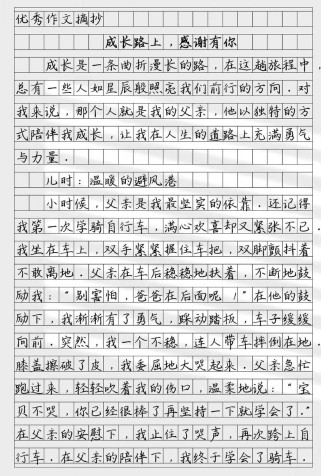 优秀作文摘抄
成长路上,感谢有你
成长是一条曲折漫长的路,在这趟旅程中,
总有一些人如星辰般照亮我们前行的方向.对
我来说,那个人就是我的父亲,他以独特的方
式陪伴我成长,让我在人生的道路上充满勇气
与力量.
儿时:温暖的避风港
小时候,父亲是我最坚实的依靠.还记得
我第一次学骑自行车,满心欢喜却又紧张不已.
我坐在车上,双手紧紧握住车把,双脚颤抖着
不敢离地.父亲在车后稳稳地扶着,不断地鼓
励我:"别害怕,爸爸在后面呢!"在他的鼓
励下,我渐渐有了勇气,踩动踏板,车子缓缓
向前.突然,我一个不稳,连人带车摔倒在地.
膝盖擦破了皮,我委屈地大哭起来.父亲急忙
跑过来,轻轻吹着我的伤口,温柔地说:"宝
贝不哭,你已经很棒了再坚持一下就学会了."
在父亲的安慰下,我止住了哭声,再次跨上自
行车.在父亲的陪伴下,我终于学会了骑车.